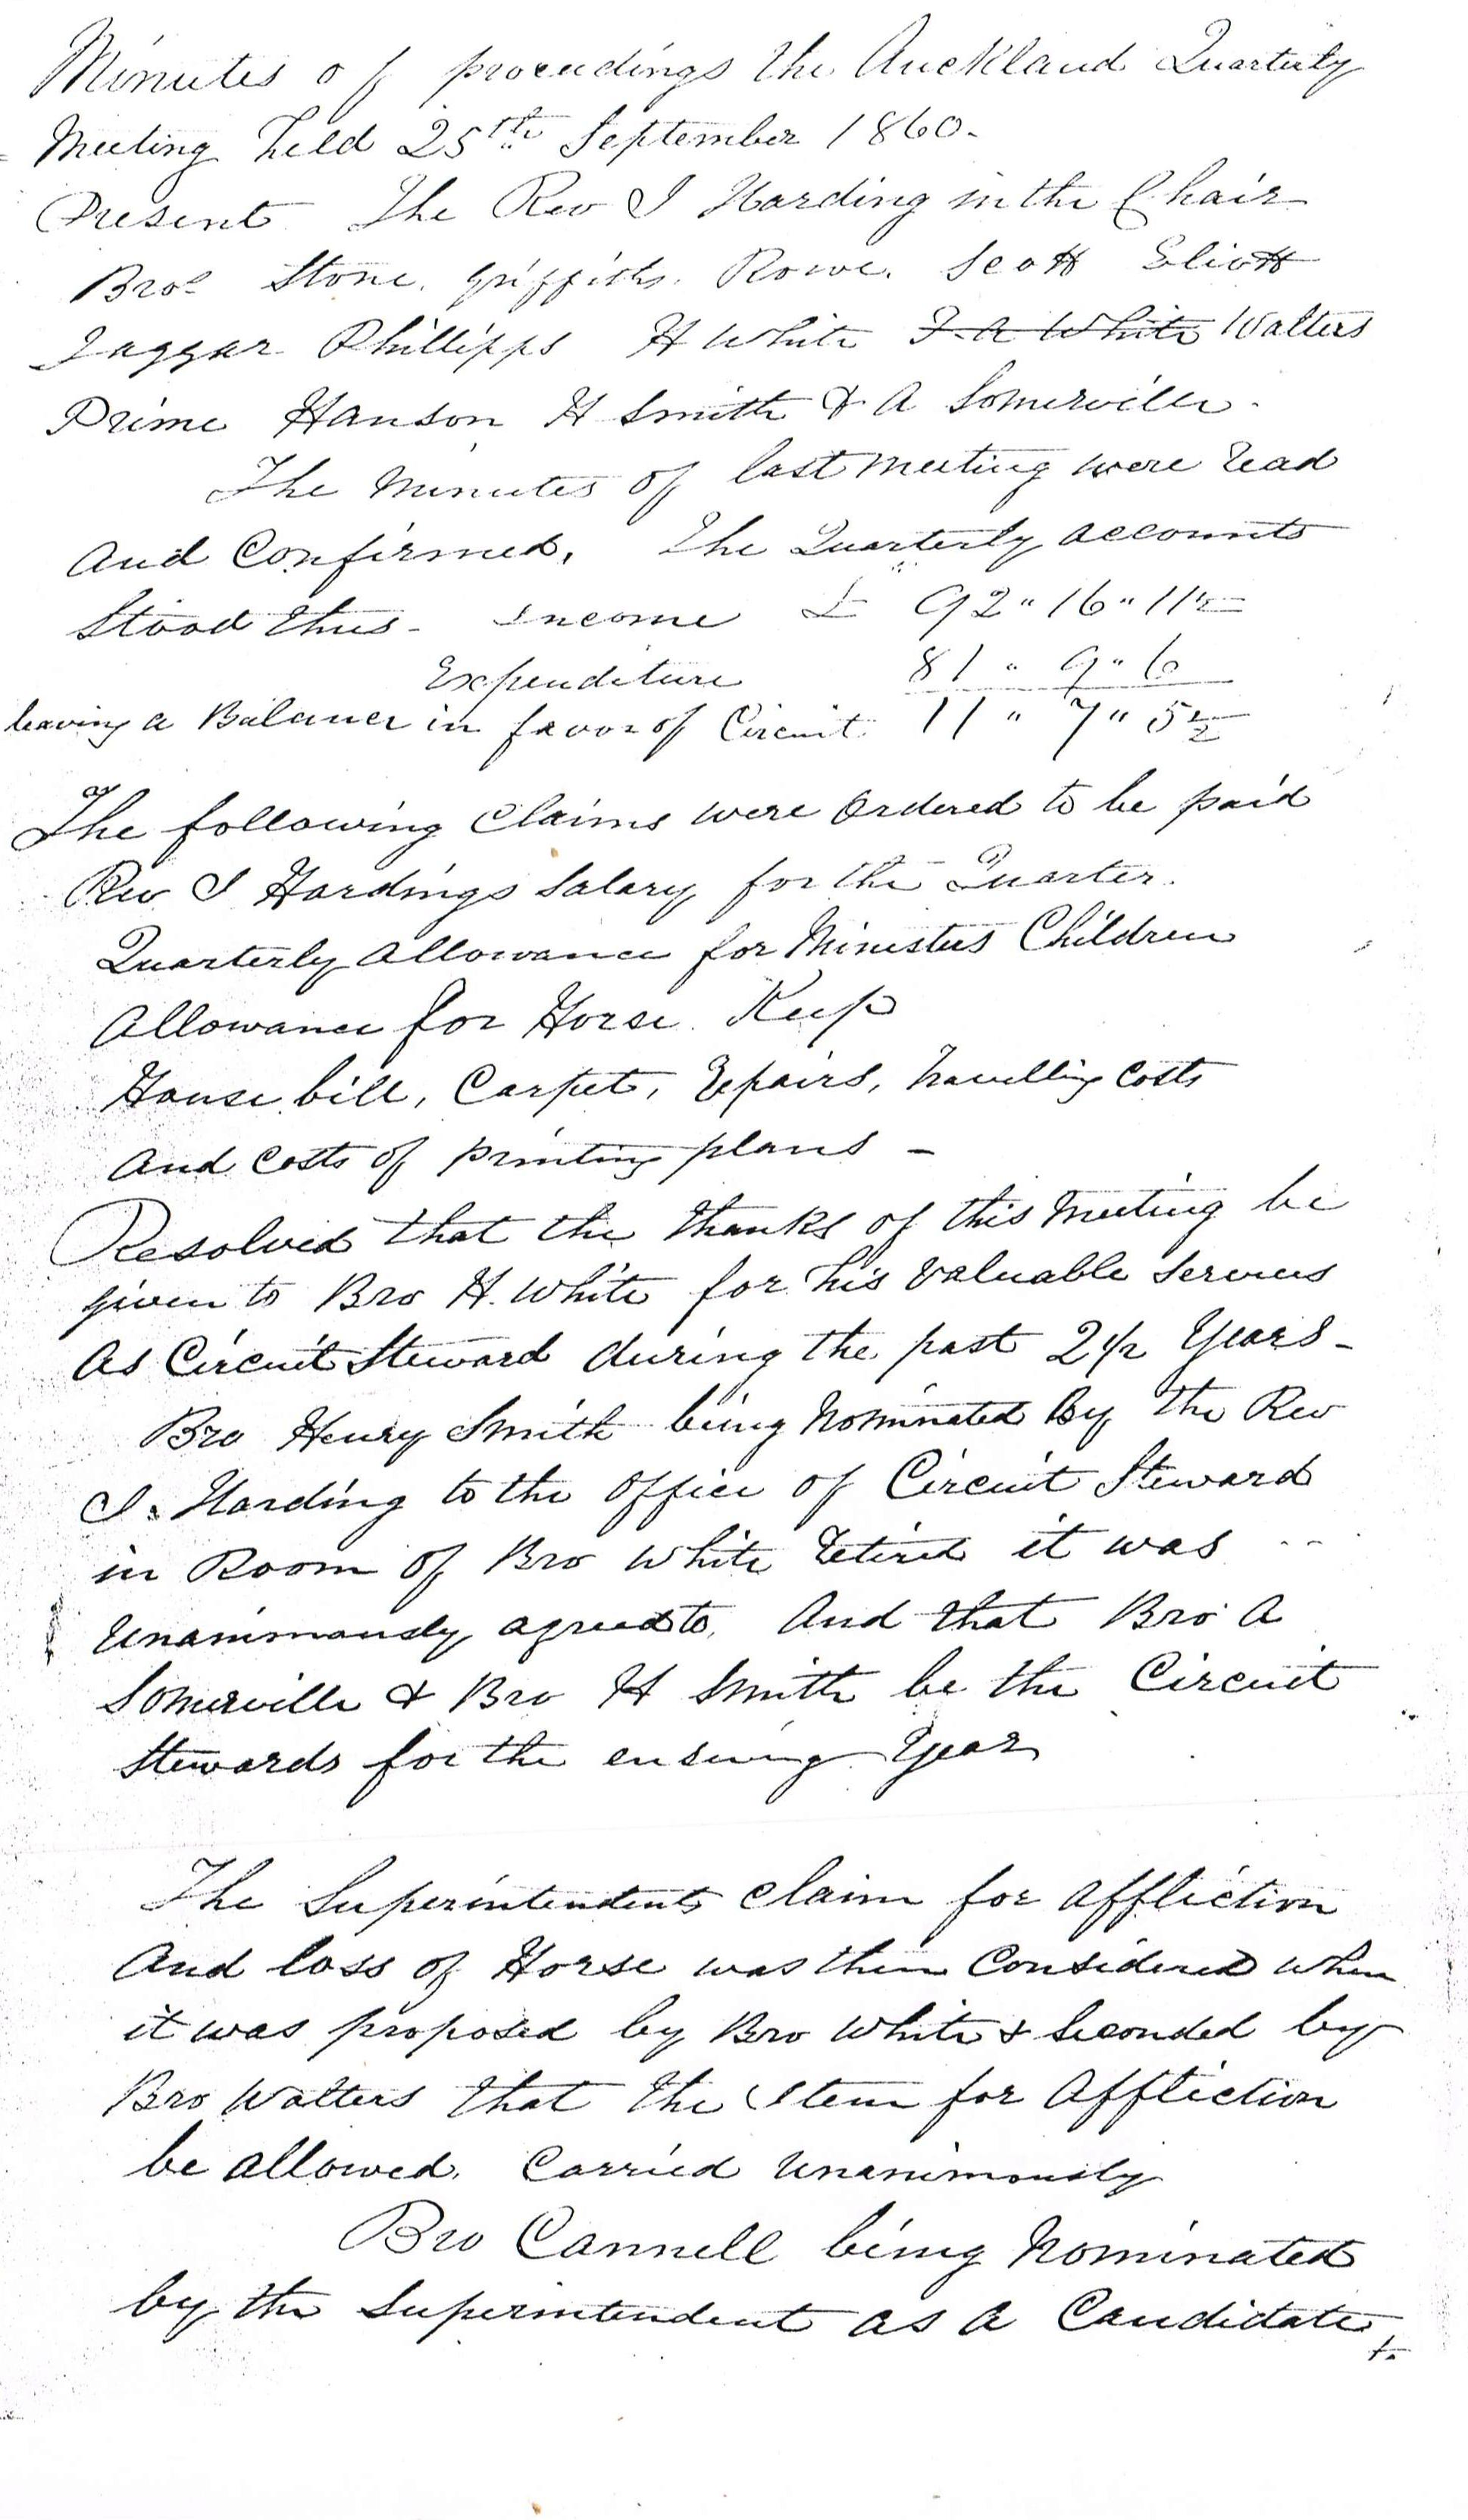 Minutes of proceedings the Auckland Quarterly
Meeting held 25th September 1860.
Present The Rev I Harding in the Chair
Bros Stone. Griffiths. Rowe. Scott Eliott
Jaggar Phillipps H White F A White Walters
Prime Hanson H Smith & A Somerville.
The Minutes of last meeting were read
and Confirmed. The Quarterly accounts
Stood thus - Income £ 92 " 16 " 11½
Expenditure 81 " 9 " 6
leaving a Balance in favor of Circuit 11 " 7 " 5½
The following Claims were ordered to be paid
Rev I Hardings Salary for the Quarter.
Quarterly allowance for Ministers Children
Allowance for Horse Keep
House bill, Carpet, Repairs, Travelling Costs
And Costs of printing plans -
Resolved that the thanks of this Meeting be
given to Bro H. White for his valuable Services
As Circuit Steward during the past 2½ Years -
Bro Henry Smith being Nominated By the Rev
I. Harding to the office of Circuit Steward
in Room of Bro White Retired it was
unanimously agreed to. And that Bro A
Somerville & Bro H Smith be the Circuit
Stewards for the ensuing Year
The Superintendents Claim for affliction
And loss of Horse was then Considered when
it was proposed by Bro White & Seconded by
Bro Walters that the Item for Affliction
be allowed. Carried unanimously
Bro Cannell being Nominated
by the Superintendent as a Candidate
to